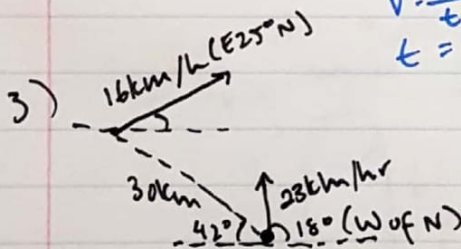 V =
t
t =
3)
16km/h (E25°N)
30km
23km/hr
42°
18° (W of N)